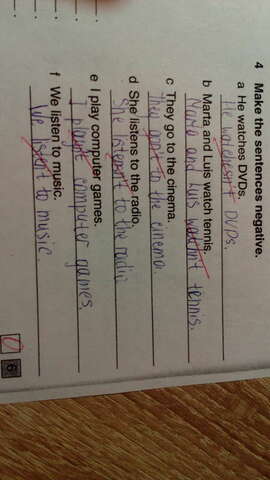 4 Make the sentences negative.
a He watches DVDs.
He watchesn't DVDs.
b Marta and Luis watch tennis.
and Luis tennis.
c They go to the cinema.
they gont to the cinema.
d She listens to the radio.
She to the radio
e I play computer games.
I playnt computer games.
f We listen to music.
We to music
0 6